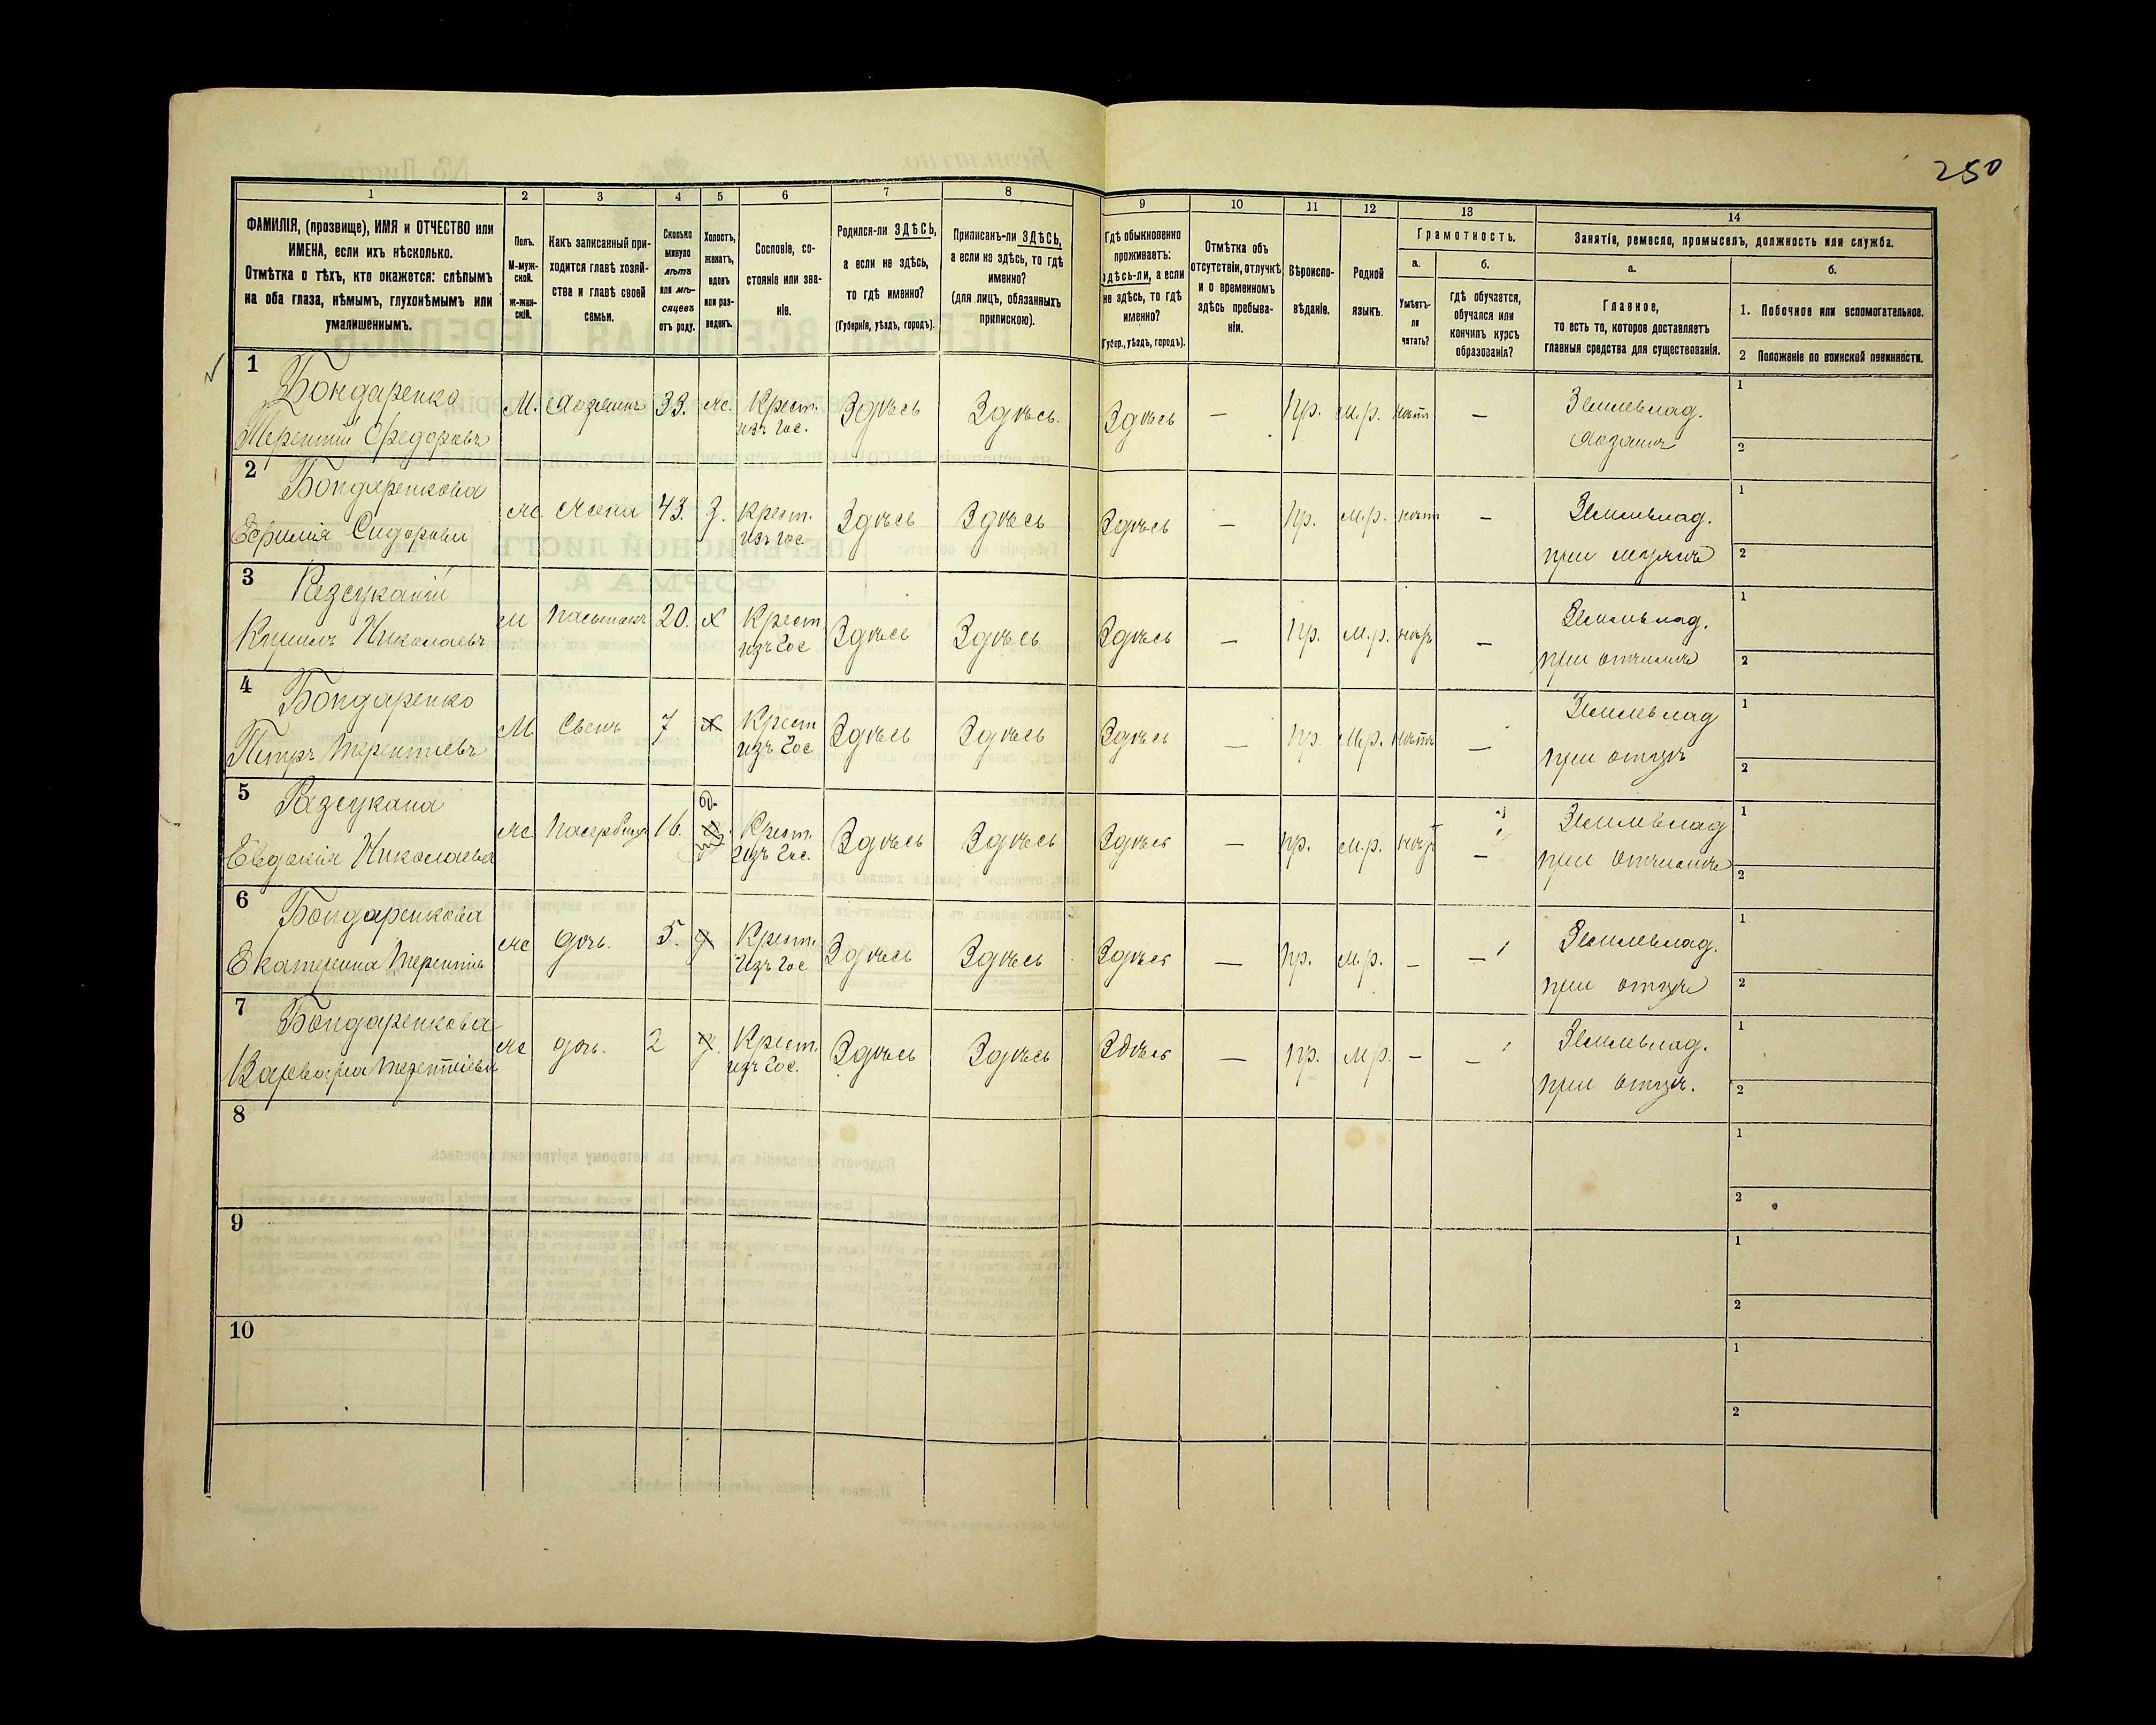 250
1 2 3 4 5 6 7 8 9 10 11 12 13 14
ФАМИЛІЯ, (прозвище), ИМЯ и ОТЧЕСТВО или
ИМЕНА, если ихъ нѣсколько.
Отмѣтка о тѣхъ, кто окажется: слѣпымъ
на оба глаза, нѣмымъ, глухонѣмымъ или
умалишеннымъ.
Полъ.
М-муж-
ской.
Ж-жен-
скій.
Какъ записанный при-
ходится главѣ хозяй-
ства и главѣ своей
семьи.
Сколько
минуло
лѣтъ
или мѣ-
сяцевъ
отъ роду.
Холостъ,
женатъ,
вдовъ
или раз-
веденъ.
Сословіе, со-
стояніе или зва-
ніе.
Родился-ли ЗДѢСЬ,
а если не здѣсь,
то гдѣ именно?
(Губернія, уѣздъ, городъ).
Приписанъ-ли ЗДѢСЬ,
а если не здѣсь, то гдѣ
именно?
(для лицъ, обязанныхъ
припискою).
Гдѣ обыкновенно
проживаетъ:
здѣсь-ли, а если
не здѣсь, то гдѣ
именно?
(Губер., уѣздъ, городъ).
Отмѣтка объ
отсутствіи, отлучкѣ
и о временномъ
здѣсь пребыва-
ніи.
Вѣроиспо-
вѣданіе.
Родной
языкъ.
Грамотность.
а.
Умѣетъ-
ли
читать?
б.
гдѣ обучается,
обучался или
кончилъ курсъ
образованія?
Занятіе, ремесло, промыселъ, должность или служба.
а.
Главное,
то есть то, которое доставляетъ
главныя средства для существованія.
б.
1. Побочное или вспомогательное.
2 Положеніе по воинской повинности.
1
Бондаренко М. Хозяинъ 33. ж. Крест. Здѣсь Здѣсь. Здѣсь — пр. м.р. нѣтъ — Землевлад. 1
Терентій Федоровъ изъ гос. Хозяинъ 2
2
Бондаренкова ж. Жена 43. З. Крест. Здѣсь Здѣсь Здѣсь — пр. м.р. нѣтъ — Землевлад. 1
Ефимія Сидорова изъ гос при мужѣ 2
3
Разсуканій М Пасынокъ 20. х Крест Здѣсь Здѣсь Здѣсь — пр. м.р. нѣтъ — Землевлад. 1
Кирилъ Николаевъ изъ гос при отчимѣ 2
4
Бондаренко М Сынъ 7 х Крест Здѣсь Здѣсь Здѣсь — пр. м.р. нѣтъ — Землевлад 1
Петръ Терентіевъ изъ гос при отцѣ 2
5
Разсукана ж Пасербица 16. Крест. Здѣсь Здѣсь Здѣсь — пр. м.р. нѣтъ — Землевлад 1
Евдокія Николаева изъ гос. при отчимѣ 2
6
Бондаренкова ж дочь. 5. д Крест. Здѣсь Здѣсь Здѣсь — пр. м.р. — — Землевлад. 1
Екатерина Терентіев изъ гос при отцѣ 2
7
Бондаренкова ж дочь. 2 д. Крест. Здѣсь Здѣсь Здѣсь — пр. м р. — — Землевлад. 1
Варвара Терентіева изъ гос. при отцѣ. 2
8 1
2
9 1
2
10 1
2